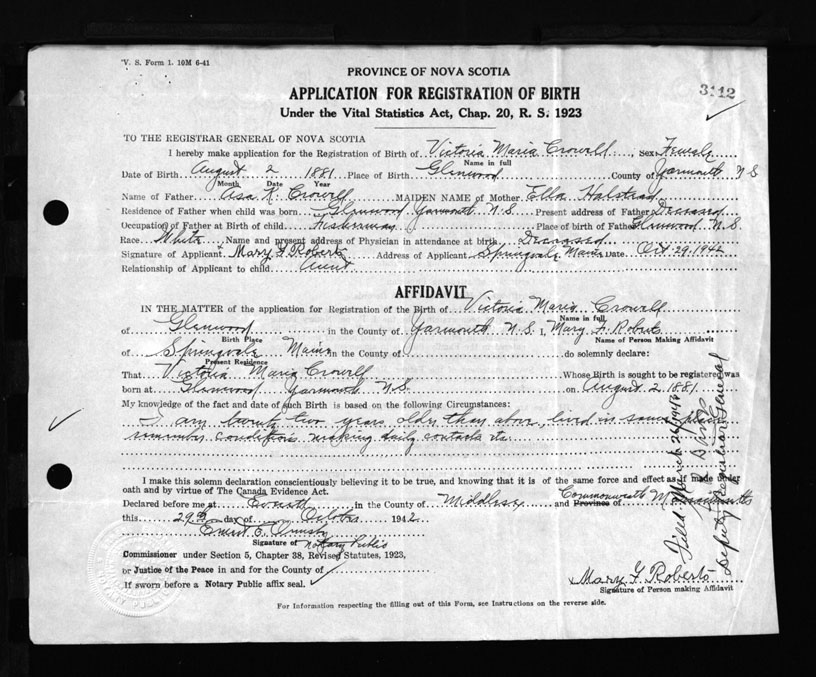 V. S. Form 1. 10M 6-41
PROVINCE OF NOVA SCOTIA
APPLICATION FOR REGISTRATION OF BIRTH
3112
Under the Vital Statistics Act, Chap. 20, R. S. 1923
TO THE REGISTRAR GENERAL OF NOVA SCOTIA
I hereby make application for the Registration of Birth of Victoria Maria Crowell Sex Female
Name in full
Date of Birth August 2 1881 Place of Birth Glenwood County of Yarmouth N S
Month Date Year
Name of Father Asa K. Crowell MAIDEN NAME of Mother Ella Halstead
Residence of Father when child was born Glenwood Yarmouth N. S. Present address of Father Deceased
Occupation of Father at Birth of child Fisherman Place of birth of Father Glenwood N. S
Race White Name and present address of Physician in attendance at birth Deceased
Signature of Applicant Mary F. Roberts Address of Applicant Springvale Maine Date Oct 29, 1942
Relationship of Applicant to child Aunt
AFFIDAVIT
IN THE MATTER of the application for Registration of the Birth of Victoria Maria Crowell
Name in full
of Glenwood in the County of Yarmouth N. S. I, Mary F. Roberts
Birth Place Name of Person Making Affidavit
of Springvale Maine in the County of do solemnly declare:
Present Residence
That Victoria Maria Crowell Whose Birth is sought to be registered was
born at Glenwood Yarmouth N.S. on August 2, 1881.
My knowledge of the fact and date of such Birth is based on the following Circumstances:
I am twenty two years older than above, lived in same place
remember conditions making daily contacts etc.
I make this solemn declaration conscientiously believing it to be true, and knowing that it is of the same force and effect as if made under
oath and by virtue of The Canada Evidence Act.
Declared before me at Everett in the County of Middlesex and Province of Commonwealth Massachusetts
this 29th day of October 1942
Ernest E.
Signature of Notary Public
Commissioner under Section 5, Chapter 38, Revised Statutes, 1923,
or Justice of the Peace in and for the County of
If sworn before a Notary Public affix seal.
Mary F. Roberts
Signature of Person making Affidavit
For Information respecting the filling out of this Form, see Instructions on the reverse side.
Filed March 26
Deputy Registrar General